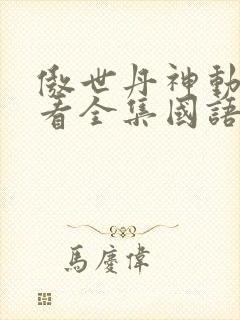 傲世丹神動
看全集國語
馬慶偉